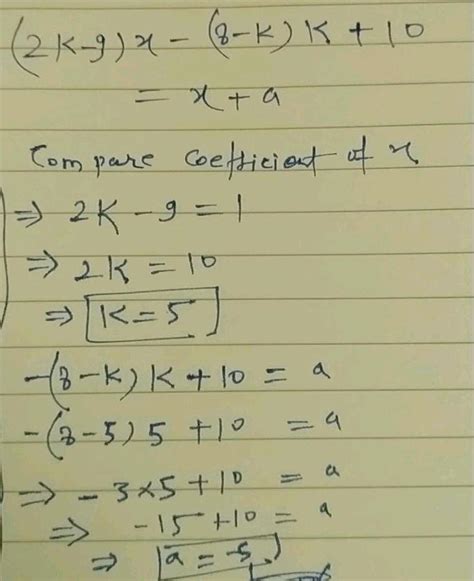 (2K-9)x - (8-K)K + 10
= x + a
Compare coefficient of x
⇒ 2K - 9 = 1
⇒ 2K = 10
⇒ K = 5
-(8-K)K + 10 = a
-(8-5) 5 + 10 = a
⇒ - 3×5 + 10 = a
⇒ -15 + 10 = a
⇒ a = -5